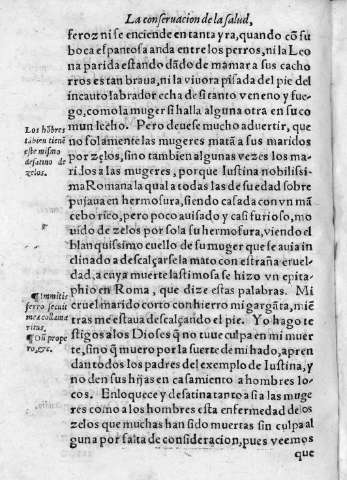 La conseruacion de la salud,
feroz ni se enciende en tanta yra, quando cõ su
boca espantosa anda entre los perros, ni la Leo
na parida estando dãdo de mamar a sus cacho
rros es tan braua, ni la viuora pisada del pie del
incauto labrador echa de si tanto veneno y fue-
go, como la muger si halla alguna otra en su co
mun lecho. Pero deuese mucho aduertir, que
no solamente las mugeres matã a sus maridos
por zelos, sino tambien algunas vezes los ma-
ridos a las mugeres, porque Iustina nobilissi-
ma Romana la qual a todas las de su edad sobre
pujaua en hermosura, siendo casada con vn mã
cebo rico, pero poco auisado y casi furioso, mo
uido de zelos por sola su hermosura, viendo el
blanquissimo cuello de su muger que se auia in
clinado a descalçarse la mato con estraña cruel-
dad, a cuya muerte lastimosa se hizo vn epita-
phio en Roma, que dize estas palabras. Mi
cruel marido corto con hierro mi gargãta, miẽ
tras me estaua descalçando el pie. Yo hago te
stigos a los Dioses q̃ no tuue culpa en mi muer
te, sino q̃ muero por la suerte de mi hado, apren
dan todos los padres del exemplo de Iustina, y
no den sus hijas en casamiento a hombres lo-
cos. Enloquece y desatina tanto a si a las muge
res como a los hombres esta enfermedad de los
zelos que muchas han sido muertas sin culpa al
guna por falta de consideracion, pues veemos
que
Los hõbres
tabien tienẽ
este mismo
desatino de
zelos.
¶ Immitis
ferro secuit
mea colla ma
ritus,
¶ Dũ prope
ro, &c.